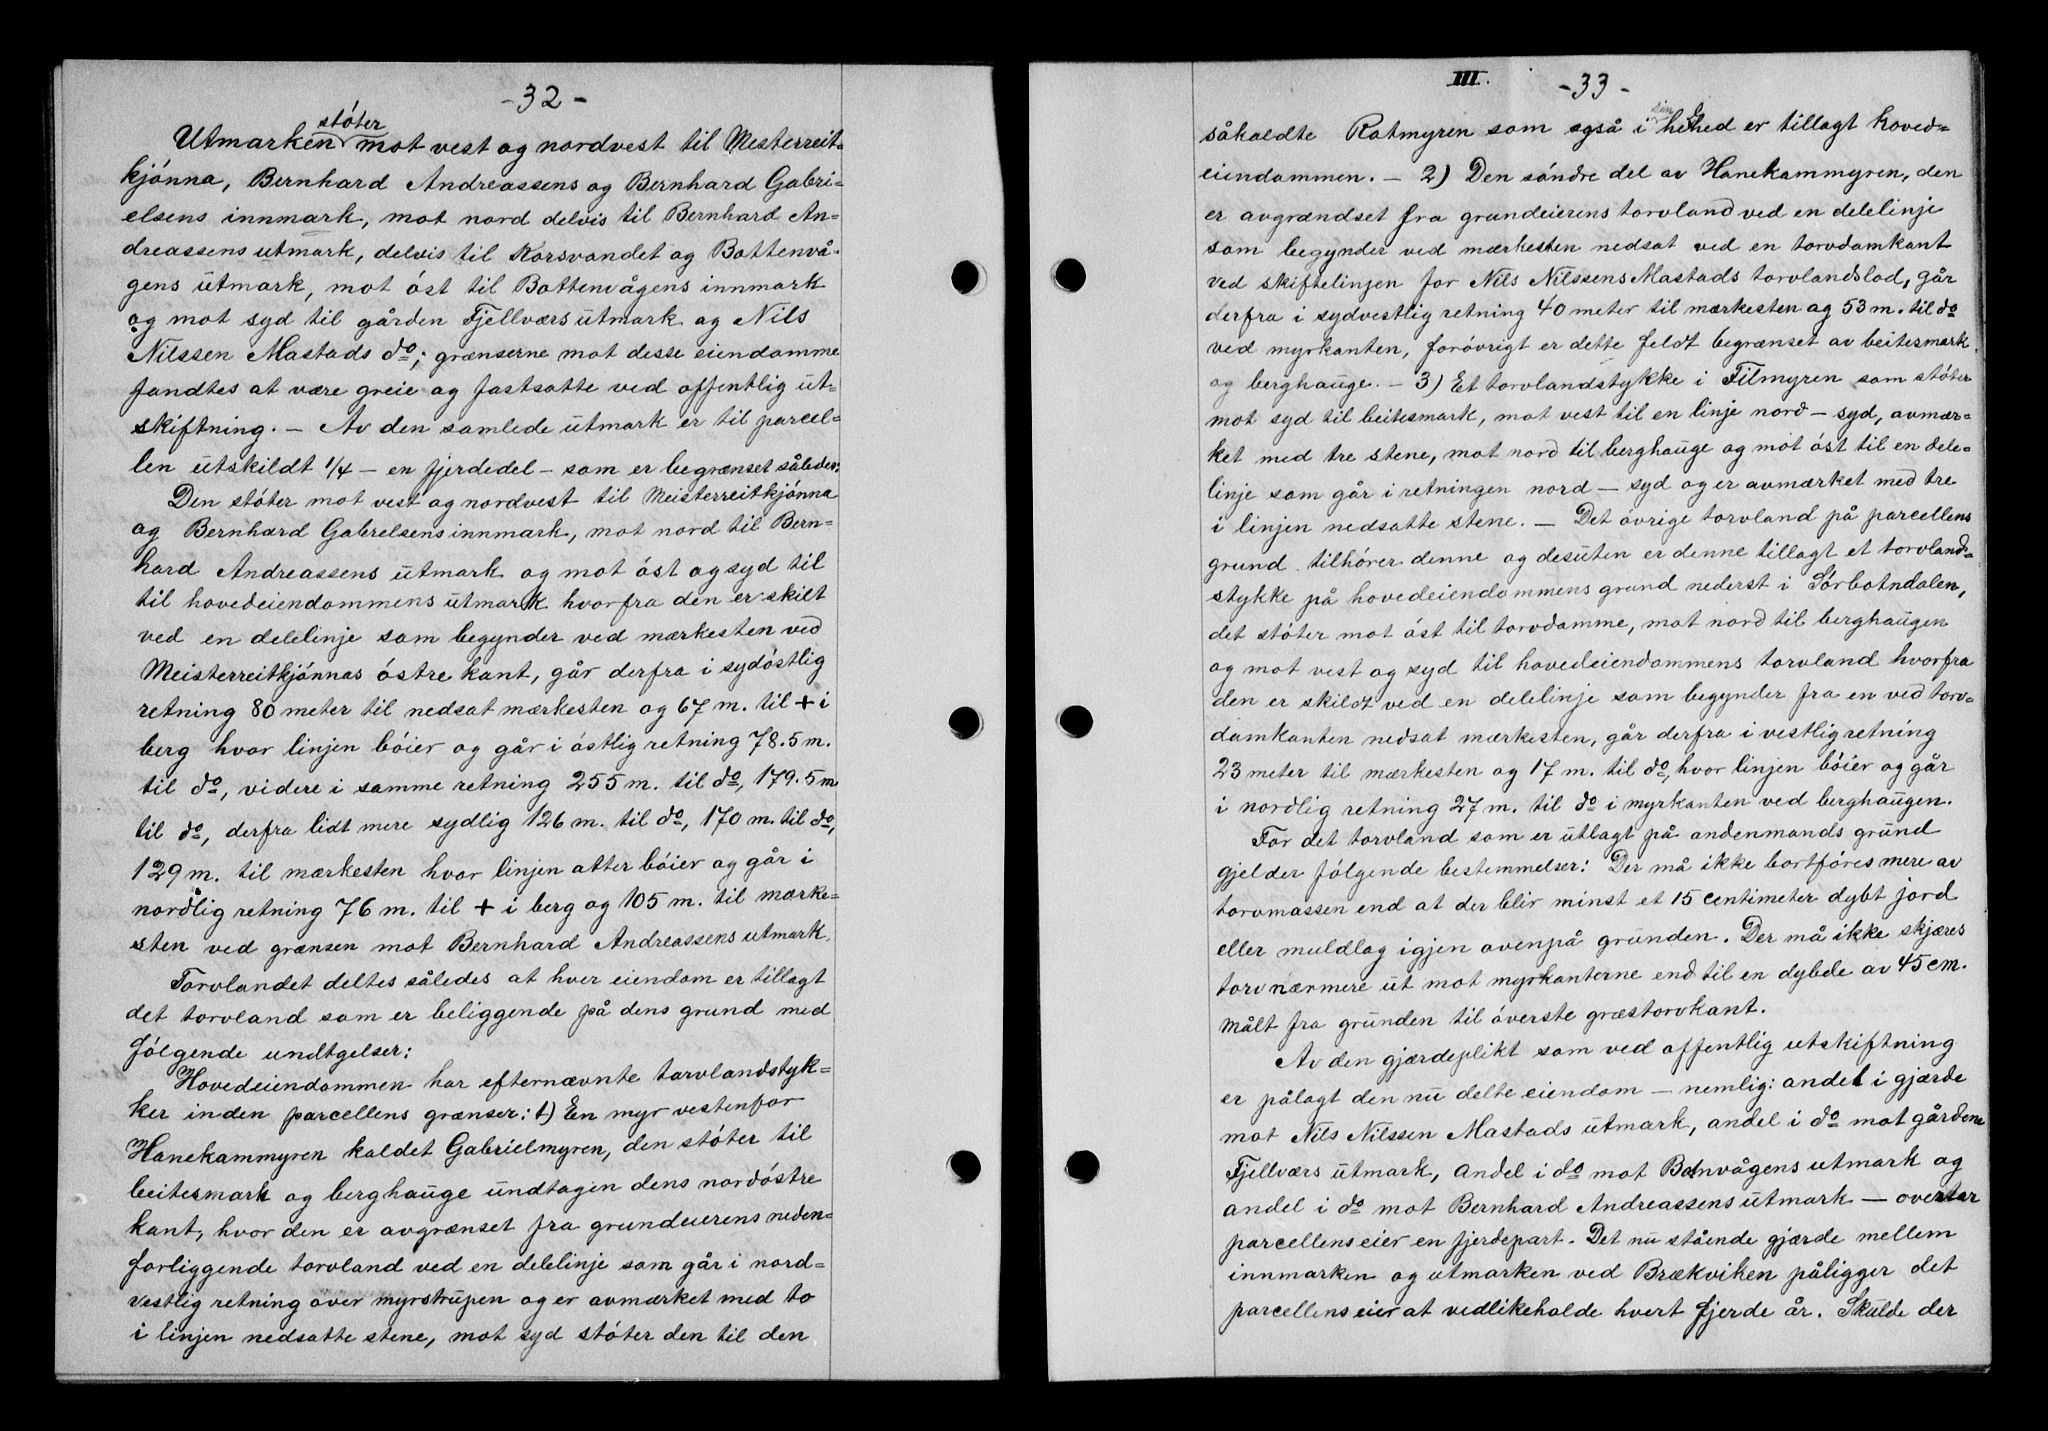 -32-
stóter
Utmarken mot vest og nordvest til Mesterreit-
kjónna, Bernhard Andreassens og Bernhard Gabri-
elsens innmark, mot nord delvis til Bernhard An-
dreassens utmark, delvis til Korsvandet og Bottenvå-
gens utmark, mot óst til Bottenvågens innmark
og mot syd til gården Fjellværs utmark og Nils
Nilssen Mastads do; grænserne mot desse eiendomme
fandtes at være greie og fastsatte ved offentlig ut-
skiftning. — Av den samlede utmark er til parcel-
len utskildt 1/4 — en fjerdedel — som er begrænset således:
Den stóter mot vest og nordvest til Meisterreitkjónna
og Bernhard Gabrelsens innmark, mot nord til Bern-
hard Andreassens utmark og mot óst og syd til
til hovedeiendommens utmark hvorfra den er skilt
ved en delelinje som begynder ved mærkesten ved
Meisterreitkjónnas óstre kant, går derfra i sydóstlig
retning 80 meter til nedsat mærkesten og 67 m. til + i
berg hvor linjen bóier og går i óstlig retning 78.5 m.
til do, videre i samme retning 255 m. til do, 179.5 m
til do, derfra lidt mere sydlig 126 m. til do, 170 m. til do,
129 m. til mærkesten hvor linjen atter bóier og går i
nordlig retning 76 m. til + i berg og 105 m. til mærke-
sten ved grænsen mot Bernhard Andreassens utmark.
Torvlandet deltes således at hver eiendom er tillagt
det torvland som er beliggende på dens grund med
fólgende undtgelser:
Hovedeiendommen har efternævnte torvlandstyk-
ker inden parcellens grænser: 1) En myr vestenfor
Hanekammyren kaldet Gabrielmyren, den stóter til
beitesmark og berghauge undtagen dens nordóstre
kant, hvor den er avgrænset fra grundeierens neden-
forliggende torvland ved en delelinje som går i nord-
vestlig retning over myrstrupen og er avmærket med to
i linjen nedsatte stene, mot syd stóter den til den
III.
-33-
sin
såkaldte Rotmyren som også i helhed er tillagt hoved-
eiendommen. — 2) Den sóndre del av Hanekammyren, den
er avgrændset fra grundeierens torvland ved en delelinje
som begynder ved mærkesten nedsat ved en torvdamkant
ved skiftelinjen for Nils Nilssens Mastads torvlandslod, går
derfra i sydvestlig retning 40 meter til mærkesten og 53 m. til do
ved myrkanten, foróvrigt er dette feldt begrænset av beitesmark
og berghauge. — 3) Et torvlandstykke i Filmyren som stóter
mot syd til beitesmark, mot vest til en linje nord — syd, avmær-
ket med tre stene, mot nord til berghauge og mot óst til en dele-
linje som går i retningen nord — syd og er avmærket med tre
i linjen nedsatte stene. — Det óvrige torvland på parcellens
grund tilhórer denne og desuten er denne tillagt et torvland-
stykke på hovedeiendommens grund nederst i Sórbotndalen,
det stóter mot óst til torvdamme, mot nord til berghaugen
og mot vest og syd til hovedeiendommens torvland hvorfra
den er skildt ved en delelinje som begynder fra en ved torv-
damkanten nedsat mærkesten, går derfra i vestlig retning
23 meter til mærkesten og 17 m. til do, hvor linjen bóier og går
i nordlig retning 27 m. til do i myrkanten ved berghaugen.
For det torvland som er utlagt på andenmands grund
gjelder fólgende bestemmelser: Der må ikke bortfóres mere av
torvmassen end at der blir minst et 15 centimeter dybt jord
eller muldlag igjen ovenpå grunden. Der må ikke skjæres
torv nærmere ut mot myrkanterne end til en dybde av 45 cm.
målt fra grunden til óverste græstorvkant.
Av den gjærdeplikt som ved offentlig utskiftning
er pålagt den nu delte eiendom — nemlig: andel i gjærde
mot Nils Nilssen Mastads utmark, andel i do mot gårdene
Fjellværs utmark, andel i do mot Botnvågens utmark og
andel i do mot Bernhard Andreassens utmark — overtar
parcellens eier en fjerdepart. Det nu stående gjærde mellem
innmarken og utmarken ved Brækviken påligger det
parcellens eier at vedlikeholde hvert fjerde år. Skulde der